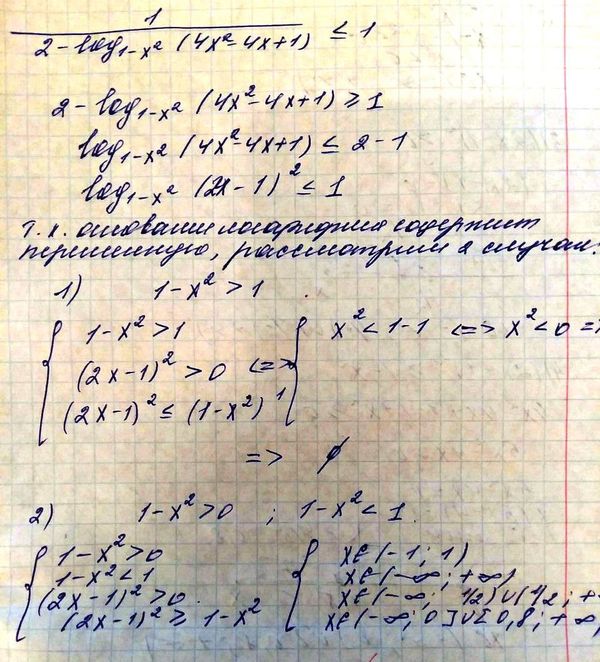 1
2 - log₁₋ₓ² (4x² - 4x + 1) ≤ 1
2 - log₁₋ₓ² (4x² - 4x + 1) ≥ 1
log₁₋ₓ² (4x² - 4x + 1) ≤ 2 - 1
log₁₋ₓ² (2x - 1)² ≤ 1
т.к. основание логарифма содержит
переменную, рассмотрим 2 случая:
1) 1 - x² > 1
1 - x² > 1 x² < 1 - 1 <=> x² < 0 =>
(2x - 1)² > 0 <=>
(2x - 1)² ≤ (1 - x²)¹
=> ∅
2) 1 - x² > 0 ; 1 - x² < 1
1 - x² > 0 x ∈ (-1; 1)
1 - x² < 1 x ∈ (-∞; +∞)
(2x - 1)² > 0 x ∈ (-∞; 1/2) ∪ (1/2; +
(2x - 1)² ≥ 1 - x² x ∈ (-∞; 0] ∪ [0,8; +∞